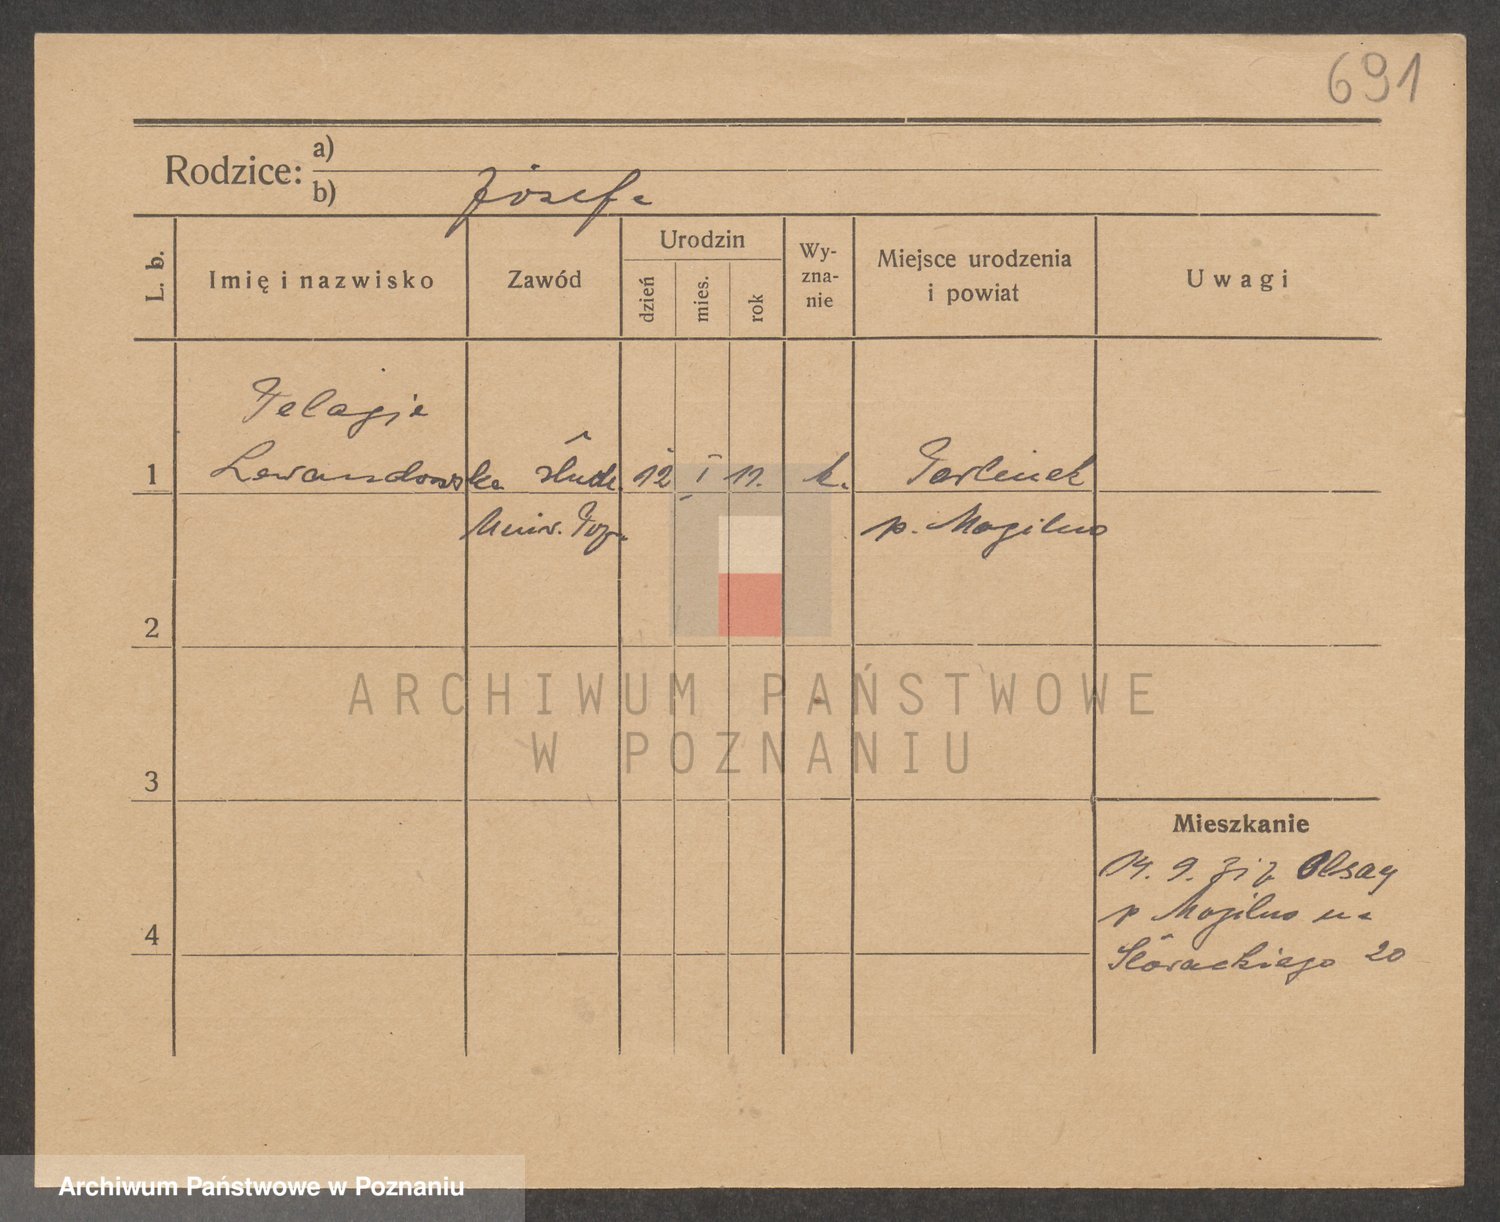 691
Rodzice: a)
b) Józefa
L. b.
Imię i nazwisko
Zawód
Urodzin
dzień
mies.
rok
Wy-
zna-
nie
Miejsce urodzenia
i powiat
Uwagi
Pelagja
1 Lewandowska stud. 12 I 11. k.
Univ. Poz. p. Mogilno
2
3
4
Mieszkanie
9.
p Mogilno
Słowackiego 20
ARCHIWUM PAŃSTWOWE
W POZNANIU
Archiwum Państwowe w Poznaniu